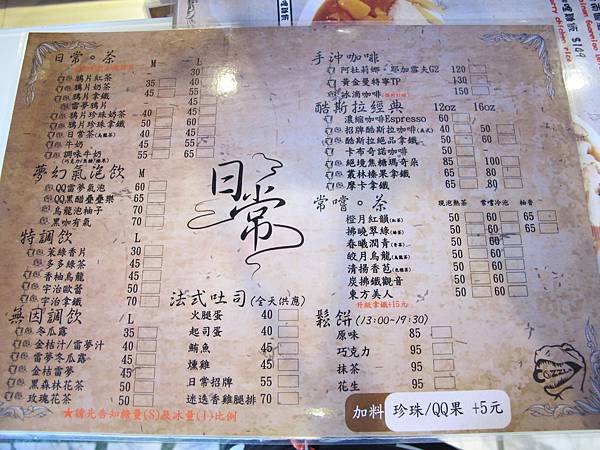 日常。茶 M L
鴉片紅茶 30
鴉片奶茶 35 40
鴉片拿鐵 45 55
雷夢鴉片 40
鴉片珍珠奶茶 35 40
鴉片珍珠拿鐵 45 55
日常茶(烏龍茶) 40 45
牛奶 45 55
調味牛奶 55 65
(巧克力/焦糖/榛果)
夢幻氣泡飲 M
QQ雷夢氣泡 60
QQ黑醋疊疊樂 65
烏龍泡柚子 70
黑咖有氣 70
特調飲 L
茉綠香片 35
多多綠茶 45
香柚烏龍 50
宇治歐蕾 50
宇治拿鐵 70
無因調飲 L
冬瓜露 35
金桔汁/雷夢汁 40
雷夢冬瓜露 45
金桔雷夢 45
黑森林花茶 50
玫瑰花茶 50
★請先告知糖量(S)及冰量(I)比例
日常
法式吐司(全天供應)
火腿蛋 40
起司蛋 40
鮪魚 45
燻雞 45
日常招牌 55
迷迭香雞腿排 70
手沖咖啡
阿杜莉娜·耶加雪夫G2 120
黃金曼特寧TP 130
冰滴咖啡 150
酷斯拉經典 12oz 16oz
濃縮咖啡Espresso 60
招牌酷斯拉咖啡(美式) 40 50
酷斯拉絕品拿鐵 60 80
卡布奇諾咖啡 60
絕境焦糖瑪奇朵 85 100
叢林榛果拿鐵 65 80
摩卡拿鐵 65 80
常嚐。茶 現泡熱茶 常嚐冷泡 柚香
橙月紅韻(紅茶) 50 60 65
拂曉翠綠(綠茶) 50 60 65
春曦潤青(青茶) 50 60 65
皓月烏龍(烏龍茶) 50 60 65
清揚香苞 50 60 65
炭拂鐵觀音 50 60 65
東方美人 50 60 65
升級拿鐵+15元
鬆餅(13:00~19:30)
原味 85
巧克力 95
抹茶 95
花生 95
加料 珍珠/QQ果 +5元